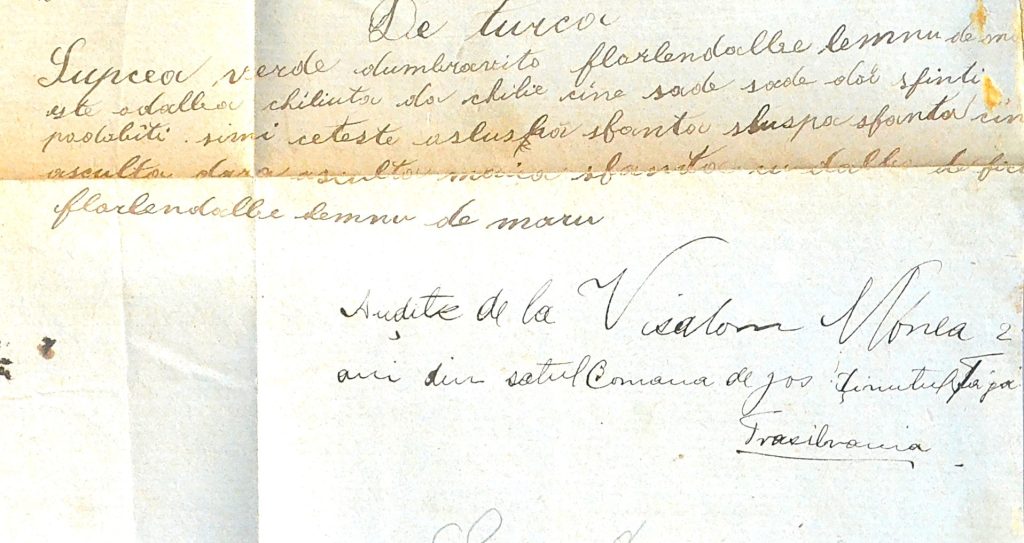 De turca
Lupcea verde dumbravito florlendalbe lemnu de
este adalba chiliuta da chilie cine sade sade doi sfinti
podobiti. simi ceteste aslusba sfanta sluspa sfanta cin
asculta dara asculta maica sfanta
florlendalbe lemnu de maru
Audite de la Visalom Mónea 2
ani din satul Comana de jos Ținutul
Trasilvania